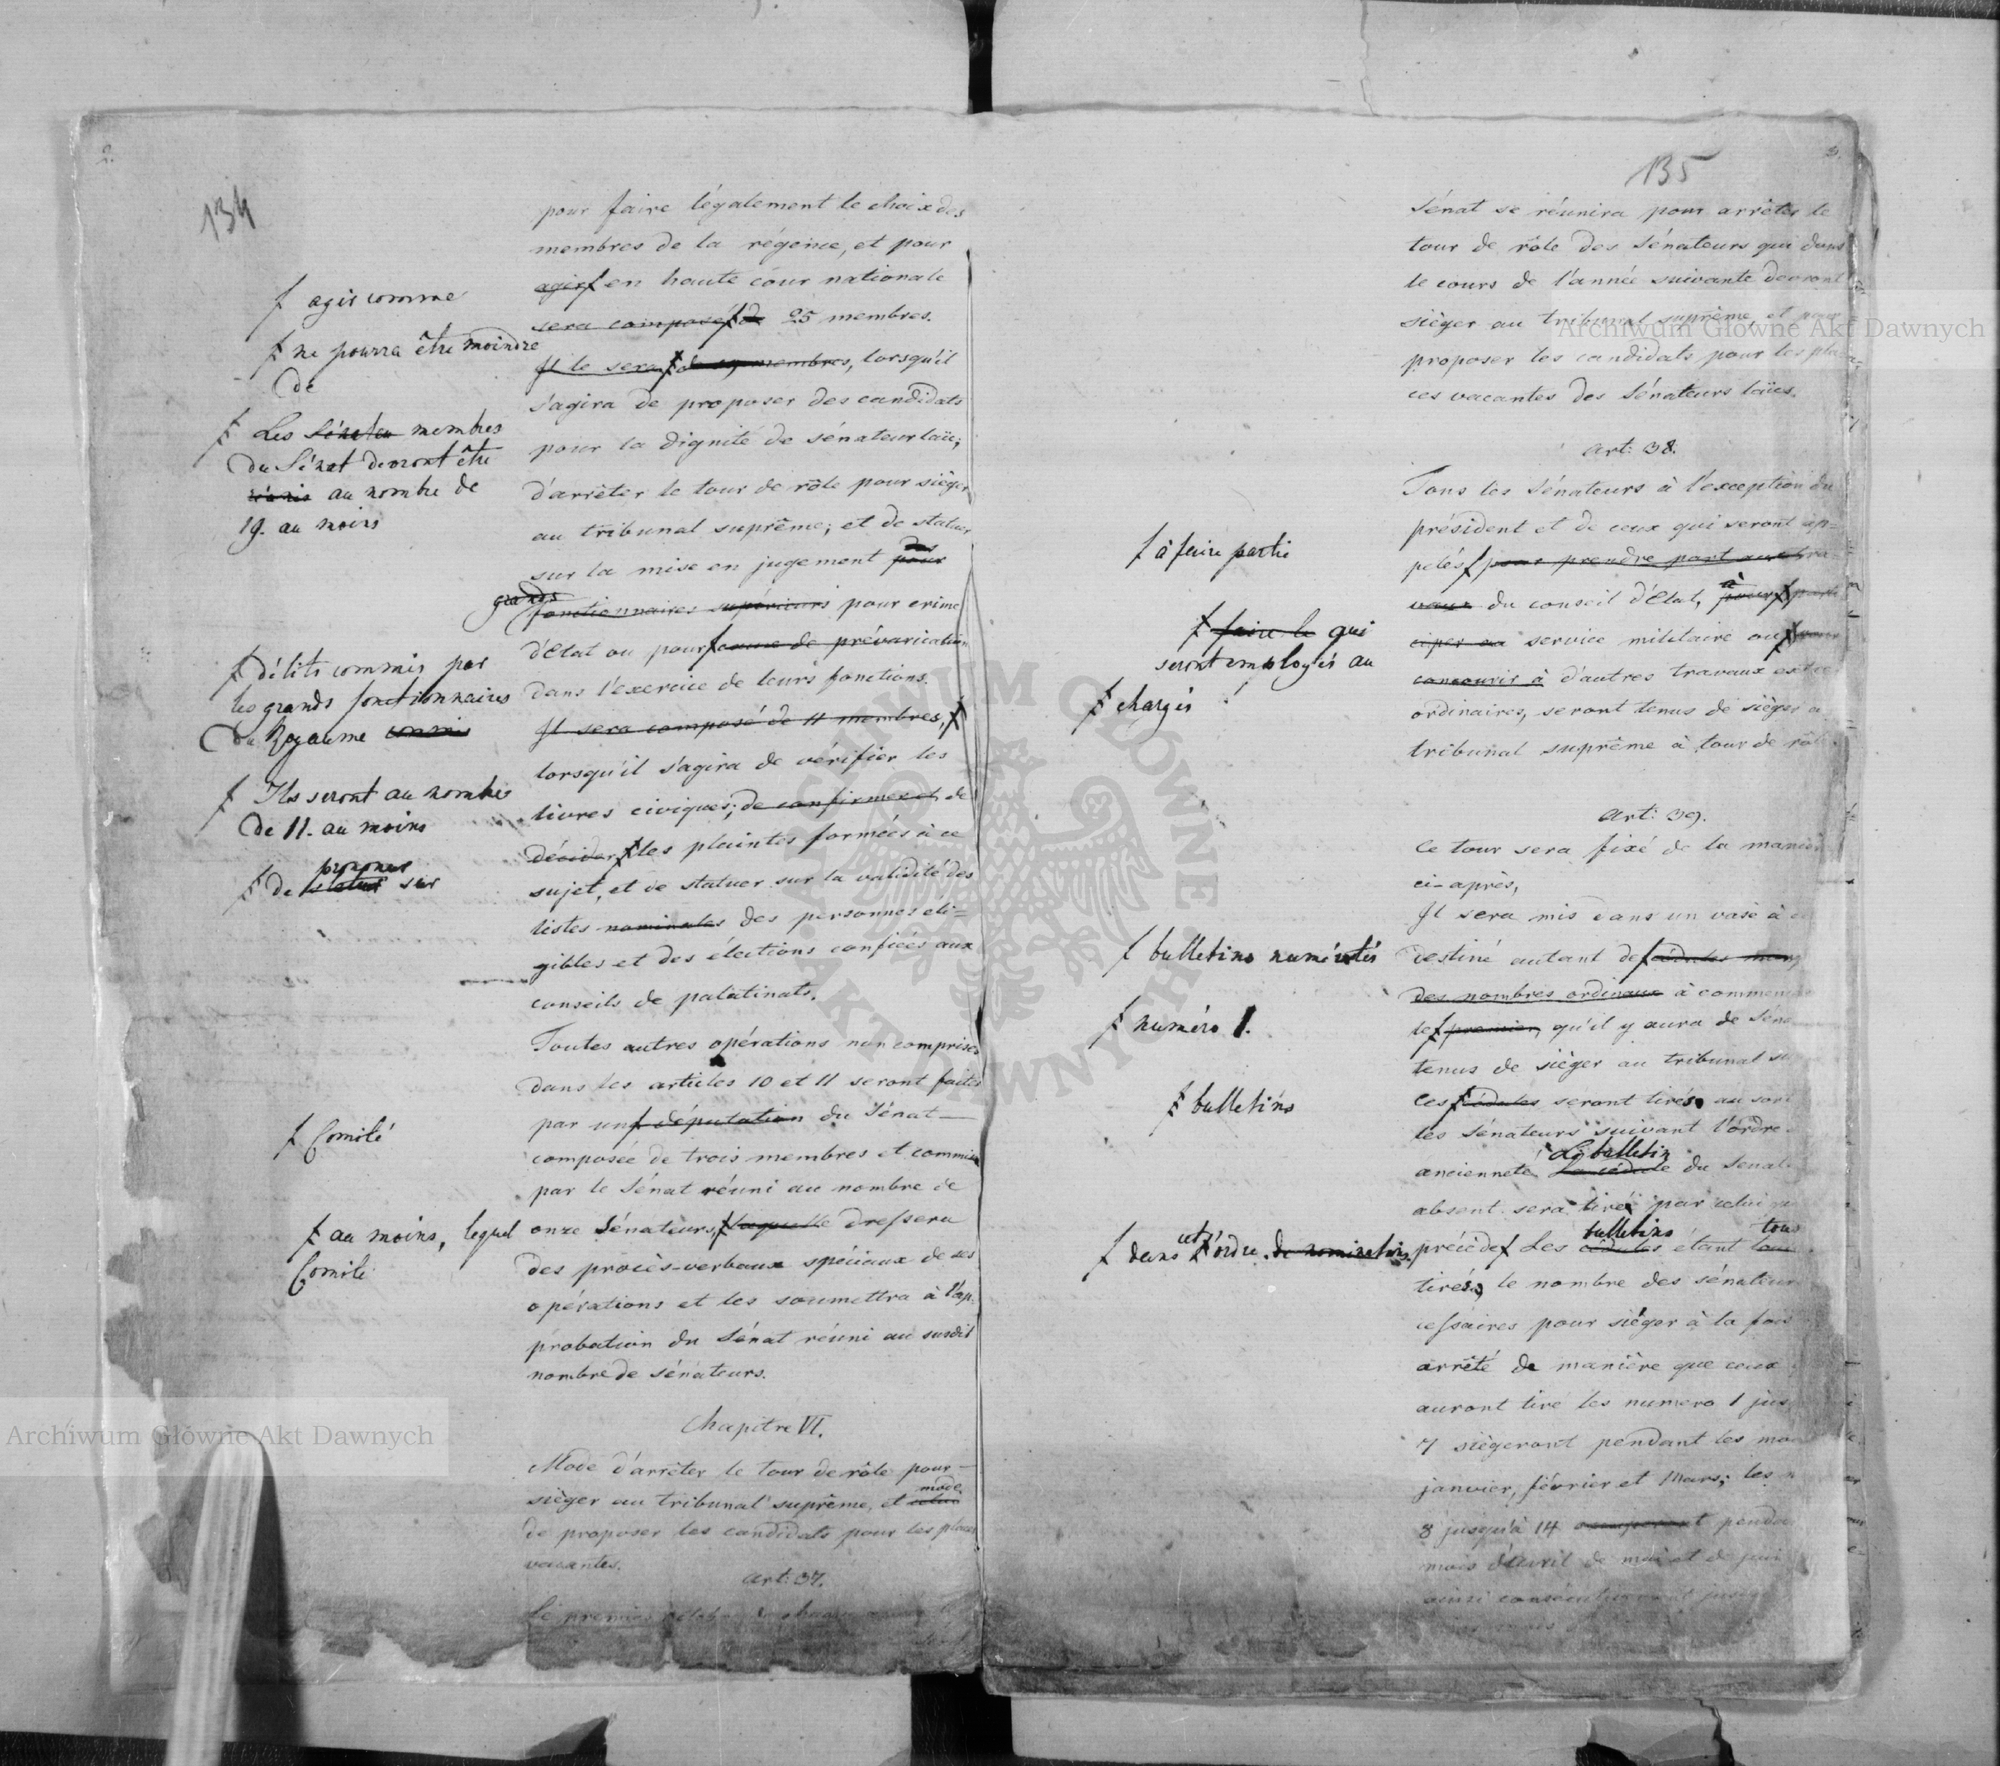 2.
134
pour faire légalement le choix des
membres de la régence, et pour
agir ƒ en haute cour nationale
ƒ agir comme
sera composé ƒ de 25 membres.
ƒ ne pourra être moindre
de
Il le sera ƒ de 19 membres, lorsqu'il
s'agira de proposer des candidats
ƒ Les Sénateu membres
du Sénat devront être
réunis au nombre de
19. au moins
pour la dignité de sénateur laïc;
d'arrêter le tour de rôle pour siéger
au tribunal suprême; et de statuer
des
sur la mise en jugement pour
grands
fonctionnaires supérieurs pour crime
d'Etat ou pour ƒ cause de prévarication
ƒ délits commis par
les grands fonctionnaires
du Royaume commis
dans l'exercice de leurs fonctions.
Il sera composé de 11 membres, ƒ
ƒ Ils seront au nombre
de 11. au moins
lorsqu'il s'agira de vérifier les
livres civiques; de confirmer et de
décider ƒ les plaintes formées à ce
proponer
ƒ de statuer sur
sujet, et de statuer sur la validité des
listes nominales des personnes éli=
gibles et des élections confiées aux
conseils de palatinats.
Toutes autres opérations non comprises
dans les articles 10 et 11 seront faites
par un ƒ députation du Sénat
ƒ Comité
composée de trois membres et commise
par le Sénat réuni au nombre de
onze Sénateurs, ƒ laquelle dressera
ƒ au moins, lequel
Comité
des procès-verbaux spéciaux de ses
opérations et les soumettra à l'ap-
probation du Sénat réuni au susdit
nombre de sénateurs.
Chapitre VI.
Mode d'arrêter le tour de rôle pour
mode
siéger au tribunal suprême, et celui
de proposer les candidats pour les places
vacantes.
Art: 37.
Le premier
135
3.
Sénat se réunira pour arrêter le
tour de rôle des Sénateurs qui dans
le cours de l'année suivante devront
siéger au tribunal suprême, et pour
proposer les candidats pour les pla-
ces vacantes des Sénateurs laïcs.
Art: 38.
Tous les Sénateurs à l'exception du
président et de ceux qui seront ap-
pelés ƒ pour prendre part aux tra-
ƒ à faire partie
à
vaux du conseil d'Etat, pour ƒ parti
ciper au service militaire ou ƒ pour
ƒ faire le qui
seront employés au
concourir à d'autres travaux extra
ƒ chargés
ordinaires, seront tenus de siéger a
tribunal suprême à tour de rôle
Art: 39.
Ce tour sera fixé de la maniè
ci-après,
Il sera mis dans un vase à ce
destiné autant de ƒ cédules
ƒ bulletins numérotés
des nombres ordinaux à commen
le ƒ premier, qu'il y aura de Séna
ƒ numéro 1.
tenus de siéger au tribunal su
Ces ƒ cédules seront tirés au sort
ƒ bulletins
les Sénateurs suivant l'ordre
Le bulletin
ancienneté. La cédule du Senat
absent sera tiré par celui
bulletins tous
précède ƒ Les cédules étant
cet
ƒ dans l'ordre de nomination
tirés, le nombre des sénateur
cessaires pour siéger à la fois
arrêté de manière que ceux
auront tiré les numero 1 jus
7 siégeront pendant les mo
janvier, février et Mars; les n
8 jusqu'à 14 pendan
mois d'Avril de mai et de jui
ainsi consécutivement jusq
Archiwum Główne Akt Dawnych
Archiwum Główne Akt Dawnych
ARCHIWUM GŁÓWNE AKT DAWNYCH